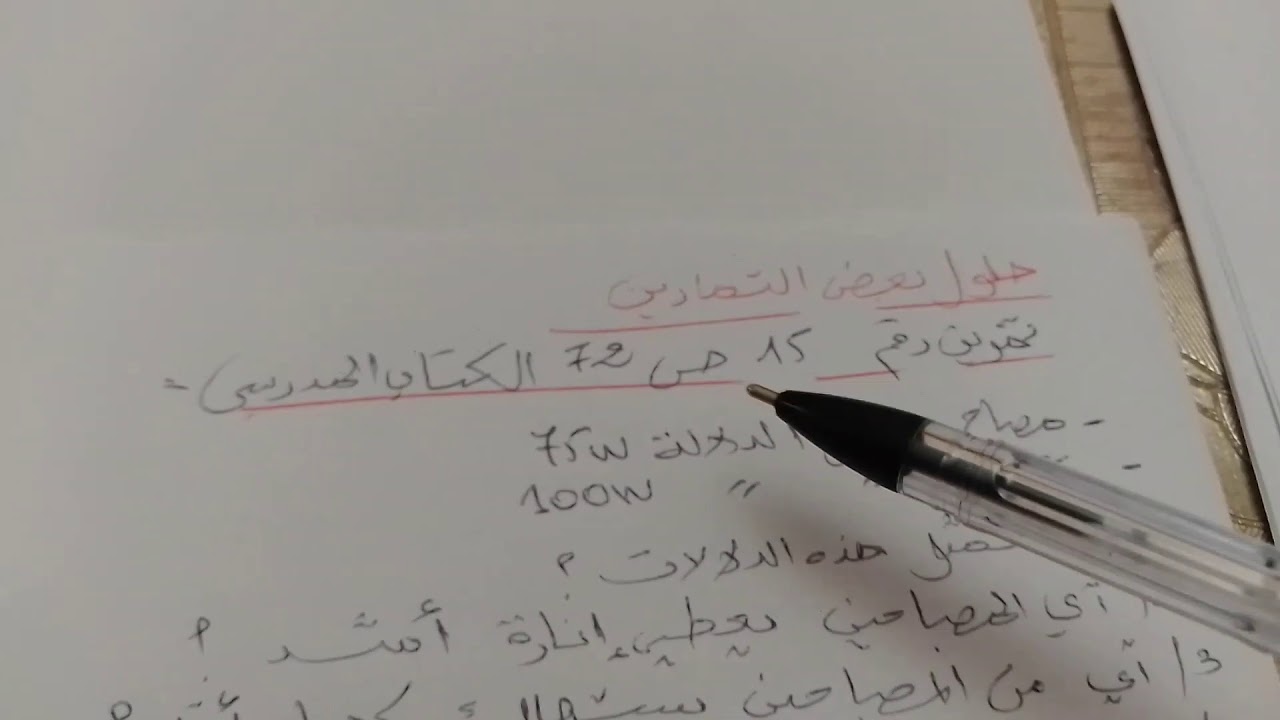 حلول بعض التمارين
تمرين رقم 15 ص 72 الكتاب المدرسي =
- مصباح الدلالة 75W
- 〃 100W
هذه الدلالات ؟
أي المصباحين يعطي إنارة أشد ؟
3/ أي من المصباحين